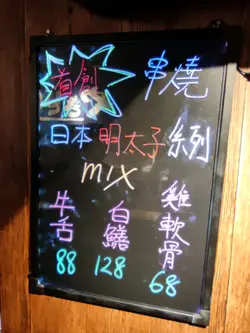 首創 串燒
日本明太子系列
mix
牛舌 白鱔 雞軟骨
88 128 68